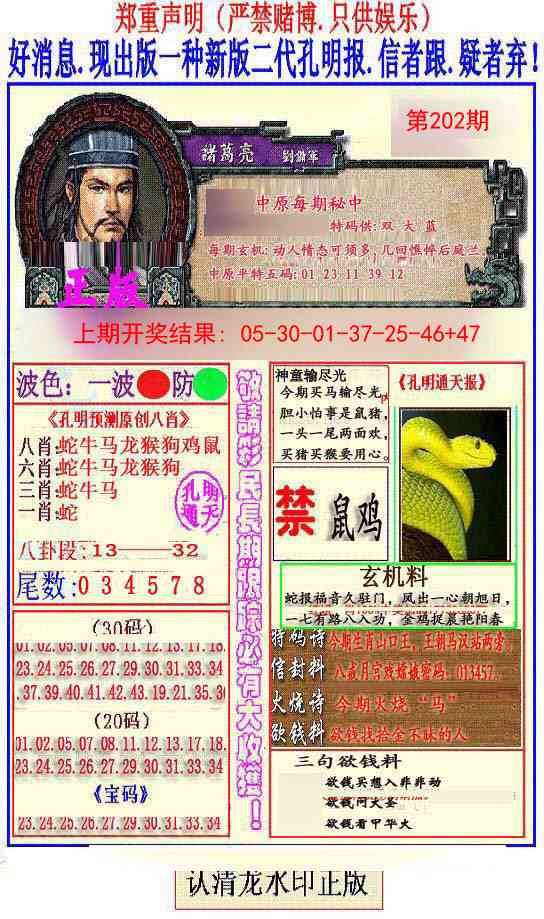 郑重声明（严禁赌博.只供娱乐）
好消息.现出版一种新版二代孔明报.信者跟.疑者弃!
第202期
諸葛亮
中原每期秘中
特码供:双 大 蓝
每期玄机:动人情态可须多,几回憔悴后庭兰.
中原平特五码:01 23 11 39 12
正版
上期开奖结果: 05-30-01-37-25-46+47
波色: 一波 防
《孔明预测原创八肖》
八肖:蛇牛马龙猴狗鸡鼠
六肖:蛇牛马龙猴狗
三肖:蛇牛马
一肖:蛇
孔明
通天
八卦段:13——32
尾数:0 3 4 5 7 8
(30码)
01.02.05.07.08.11.12.13.17.18.
23.24.25.26.27.29.30.31.33.34
.37.39.40.41.42.43.19.21.35.3
(20码)
01.02.05.07.08.11.12.13.17.18.
23.24.25.26.27.29.30.31.33.34
《宝码》
23.24.25.26.27.29.30.31.33.34
敬請彩民長期跟踪必有大收獲!
神童输尽光
今期买马输尽光,
胆小怕事是鼠猪,
一头一尾两面欢,
买猪买猴要用心。
禁 鼠鸡
《孔明通天报》
玄机料
蛇报福音久驻门, 凤出一心朝旭日,
一七有路八入功, 金鸡捉襄艳阳春
特码诗 今期生肖山口王, 王朝马汉站两旁。
信封料 八戒月宫戏嫦娥密码: 013457.
火烧诗 今期火烧“马”
欲钱料 欲钱找拾金不昧的人
三句欲钱料
欲钱买想入非非动
欲钱问大圣
欲钱看甲华火
认清龙水印正版